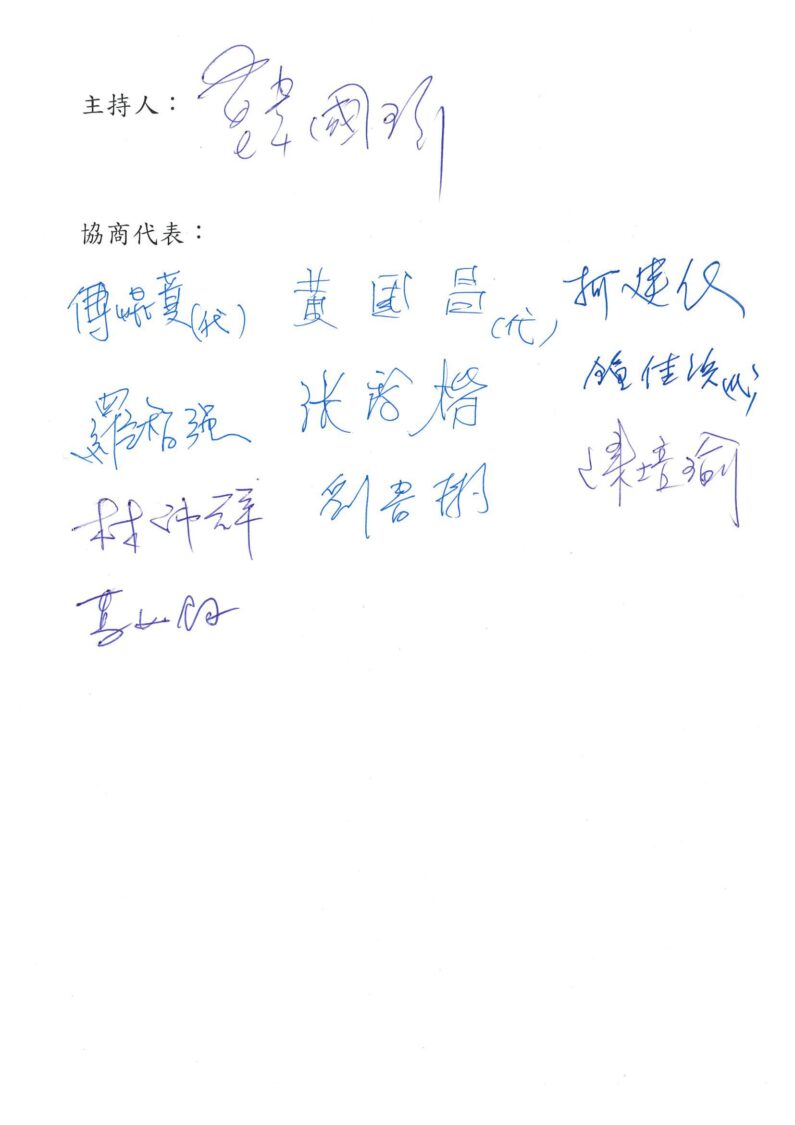 主持人：韓國瑜
協商代表：
傅崐萁(代) 黃國昌(代) 柯建銘
羅智强 张啓楷 鍾佳濱(代)
林沛祥 劉書彬 陳培瑜